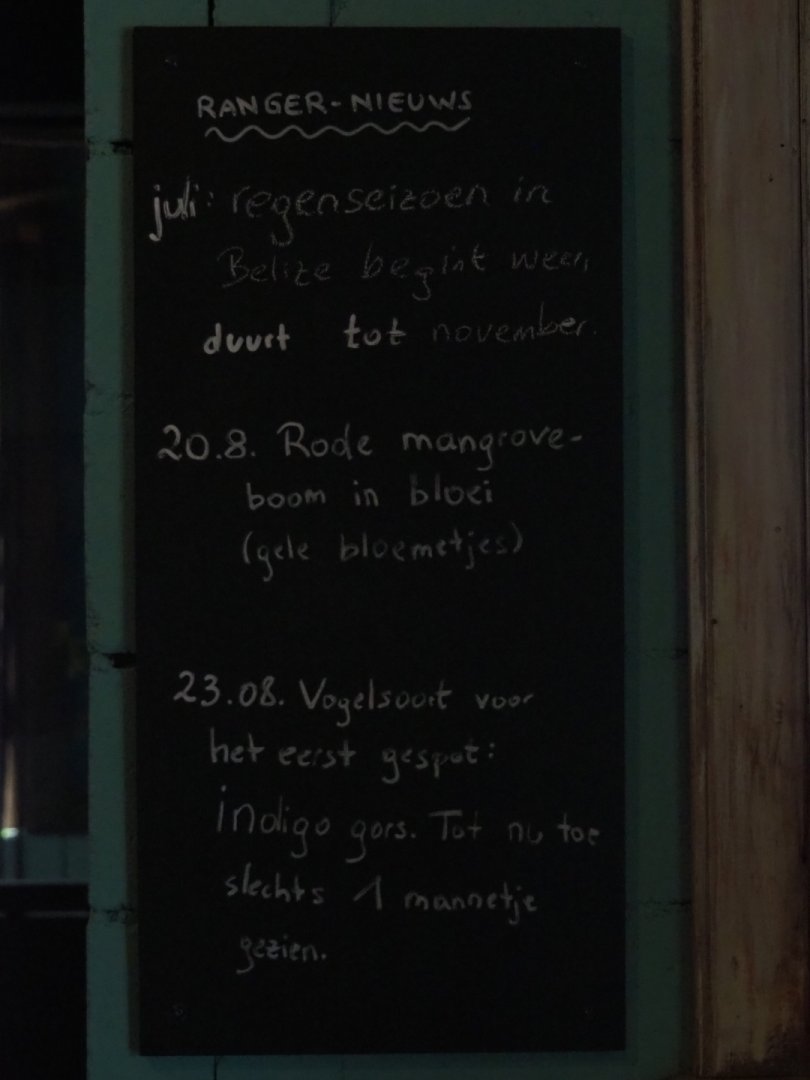 RANGER-NIEUWS
juli: regenseizoen in
Belize begint weer,
duurt tot november.
20.8. Rode mangrove-
boom in bloei
(gele bloemetjes)
23.08. Vogelsoort voor
het eerst gespot:
indigo gors. Tot nu toe
slechts 1 mannetje
gezien.